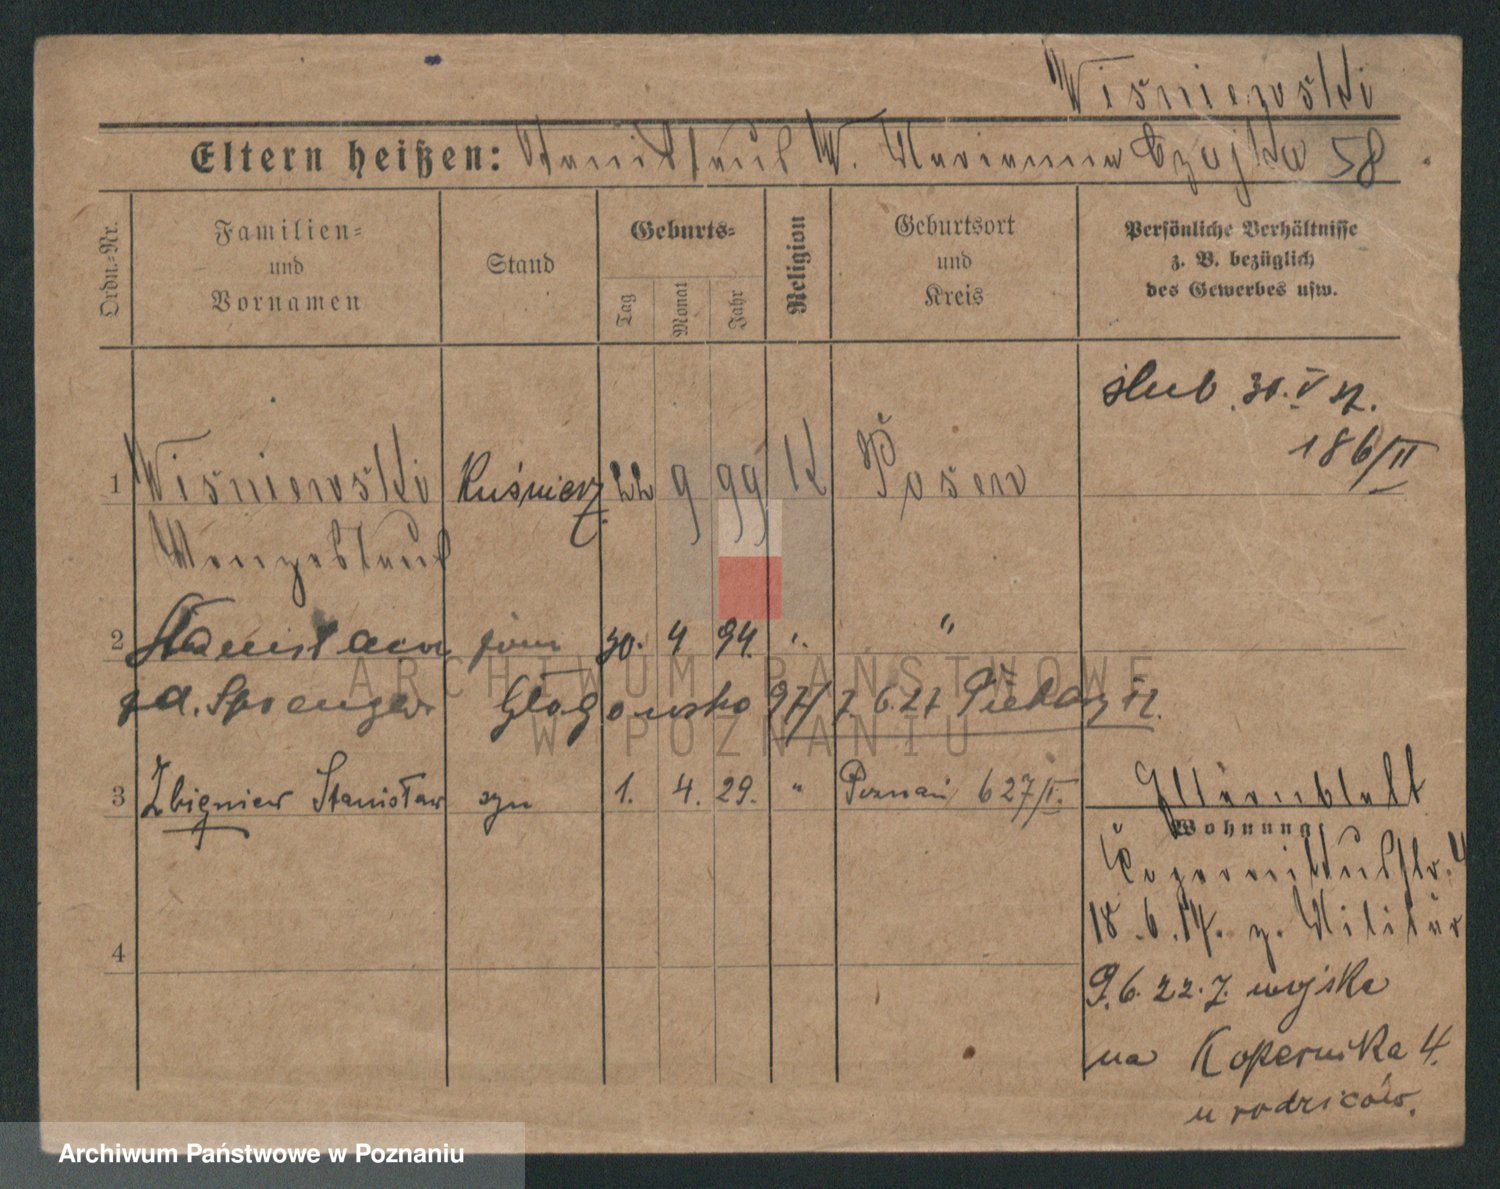 Wiśniewski
Eltern heißen: Stanislaus W. Marianna Czajka 58
Ordn.-Nr.
Familien- und Vornamen
Stand
Geburts-
Tag
Monat
Jahr
Religion
Geburtsort und Kreis
Persönliche Verhältnisse
z. B. bezüglich
des Gewerbes usw.
ślub 30. V
186/II
1 Wiśniewski Kuśnierz 22 9 99 K Posen
2 Stanisława żona 30. 4 94. " "
Głogowska 97/ 7 6.27 Piekary
3 Zbigniew Stanisław syn 1. 4. 29. " Poznań 627/I.
Elternblatt
Wohnung
18.6.17. z. Militär
9.6.22. z wojska
4
na Kopernika 4.
u rodziców.
ARCHIWUM PAŃSTWOWE
W POZNANIU
Archiwum Państwowe w Poznaniu